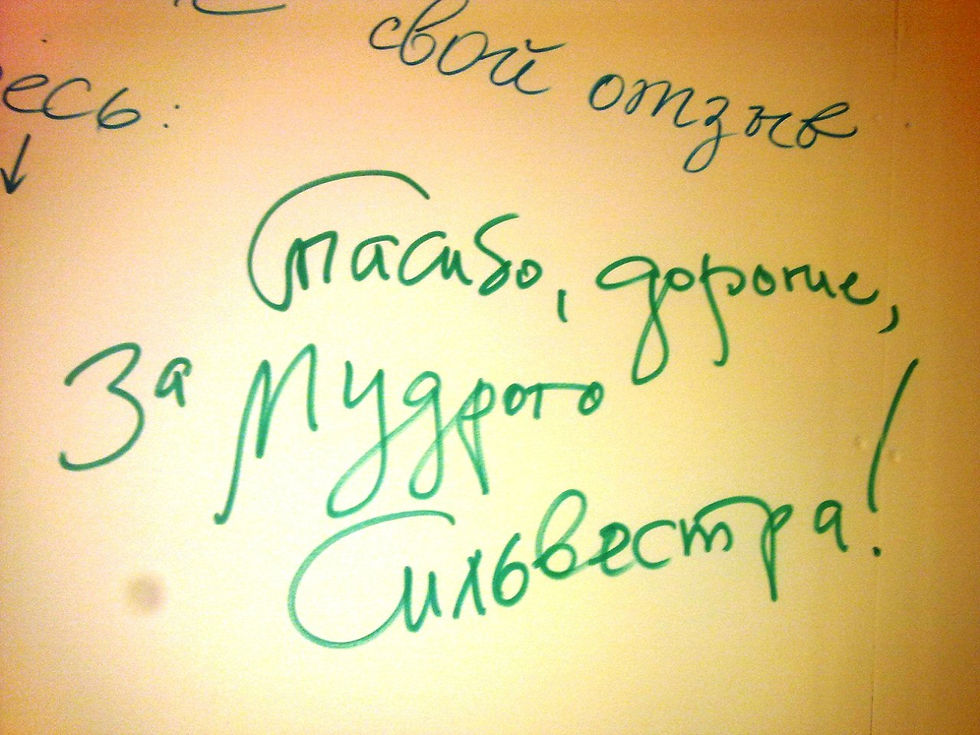 свой отзыв
есь:
Спасибо, дорогие,
За Мудрого
Сильвестра!